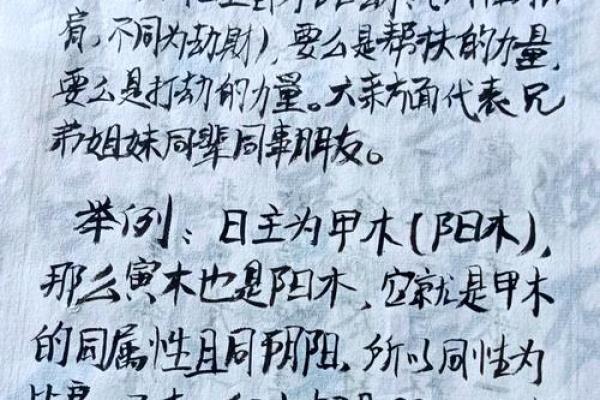 肩,不同为劫财),要么是帮扶的力量,
要么是打劫的力量。六亲方面代表兄
弟姐妹同辈同事朋友。
举例:日主为甲木(阳木),
那么寅木也是阳木,它就是甲木
的同属性且同阴阳,所以同性为